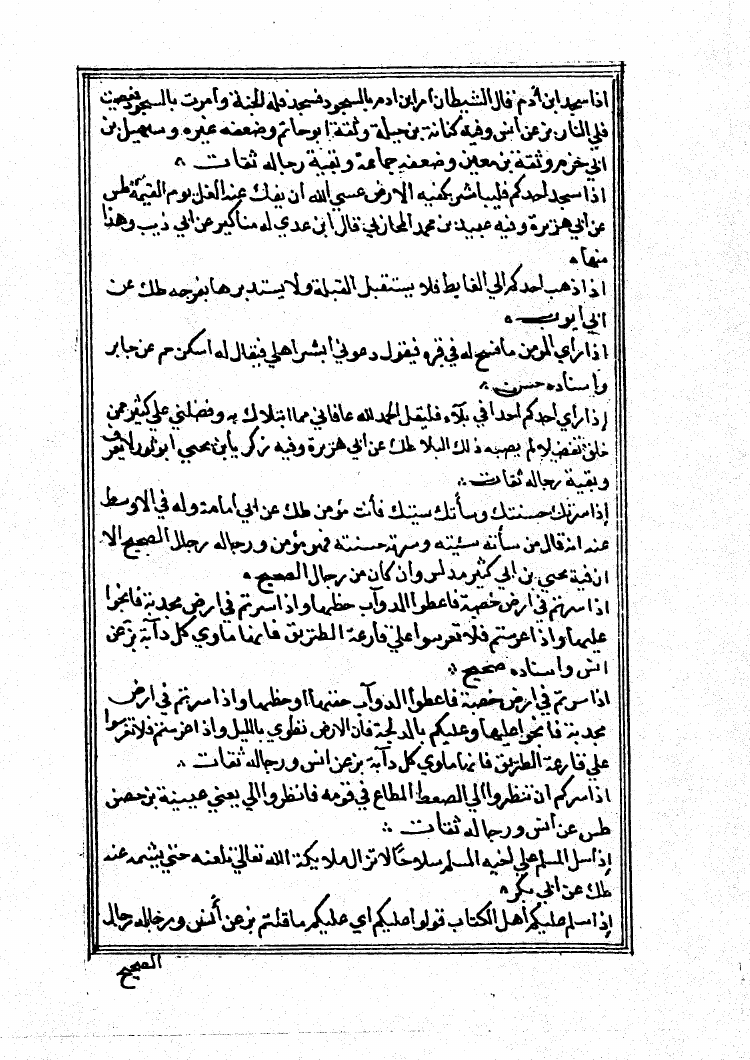 اذا سجد ابن أدم قال الشيطان امر ابن ادم بالسجود فسجد فله الجنة وامرت بالسجود فعصيت
فلي النار بز عن انس وفيه كنانة بن جبلة وثقه ابو حاتم وضعفه غيره وسهيل بن
ابي حزم وثقه بن معين وضعفه جماعة وبقية رجاله ثقات
اذا سجد احدكم فليباشر بكفيه الارض عسي الله ان يفك عنه الغل يوم القيمة طس
عن ابي هريرة وفيه عبيد بن محمد المحاربي قال ابن عدي له مناكير عن ابي ذيب وهذا
منها
اذا ذهب احدكم الي الغايط فلا يستقبل القبلة ولا يستدبرها بفرجه طك عن
ابي ايوب
اذا راي المومن ما فسح له في قبره فيقول دعوني ابشر اهلي فيقال له اسكن حم عن جابر
واسناده حسن
إذا راي احدكم احدا في بلآء فليقل الحمد لله عافاني مما ابتلاك به وفضلني علي كثير ممن
خلق تفضيلا لم يصبه ذلك البلا طك عن ابي هريرة وفيه زكريا بن يحيي ابو لا يعرف
وبقية رجاله ثقات
إذا سرتك حسنتك وسأتك سيتك فأنت مؤمن طك عن ابي أمامة وله في الاوسط
عنه انه قال من سأته سيئته وسرته حسنته فهو مؤمن ورجاله رجال الصحيح الا
ان فيه يحيي بن ابي كثير مدلس وان كان من رجال الصحيح
اذا سرتم في ارض خصبة فاعطوا الدوآب حظها واذا سرتم في ارض مجدبة فانجوا
عليها واذا عرستم فلا تعرسوا علي قارعة الطريق فانها ماوي كل دآبة بز عن
انس واسناده صحيح
اذا سرتم في ارض خصبة فاعطوا الدوآب حقها او حظها واذا سرتم في ارض
مجدبة فانجوا عليها وعليكم بالدلجة فان الارض تطوي بالليل واذا عرستم فلا تعرسوا
علي قارعة الطريق فانها ماوي كل دآبة بز عن انس ورجاله ثقات
اذا سركم ان تنظروا الي المطاع في قومه فانظروا الي يعني عيينة بن حصن
طس عن انس ورجاله ثقات
إذا سل المسلم علي اخيه المسلم سلاحًا لا تزال ملايكة الله تعالي تلعنه حتي يشيمه عنه
طك عن ابي بكر
إذا سلم عليكم أهل الكتاب قولوا عليكم اي عليكم ما قلتم بز عن أنس ورجاله رجال
الصحيح